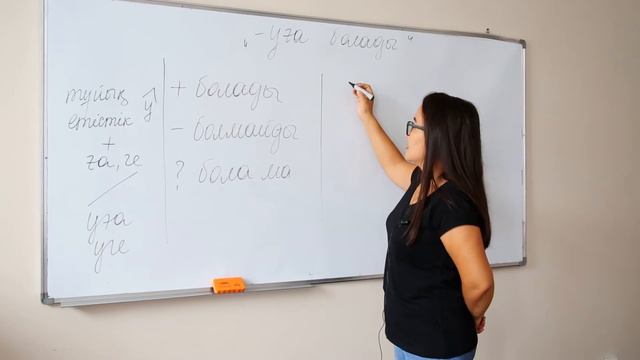 „-уға болады"
тұйық
етістік
^
у
+
ға, ге
уға
уге
+ болады
- болмайды
? бола ма